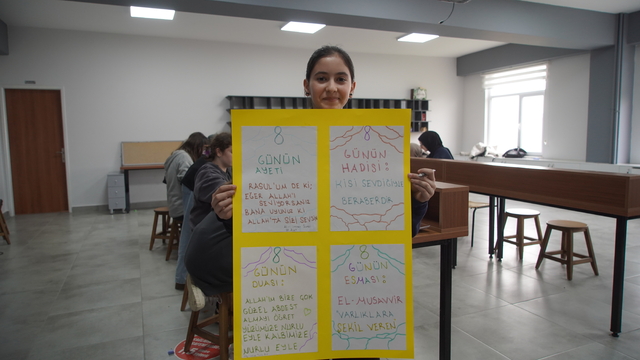 8
GÜNÜN
AYETİ
RASUL'ÜM DE Kİ;
EĞER ALLAH'I
SEVİYORSANIZ
BANA UYUNUZ Kİ
ALLAH'TA SİZİ SEVSİN
8
GÜNÜN
HADİSİ:
KİŞİ SEVDİĞİYLE
BERABERDİR
8
GÜNÜN
DUASI:
ALLAH'IM BİZE ÇOK
GÜZEL ABDEST
ALMAYI ÖĞRET
YÜZÜMÜZE NURLU
EYLE KALBİMİZE
NURLU EYLE
8
GÜNÜN
ESMASI:
EL-MUSAVVİR
VARLIKLARA
ŞEKİL VEREN